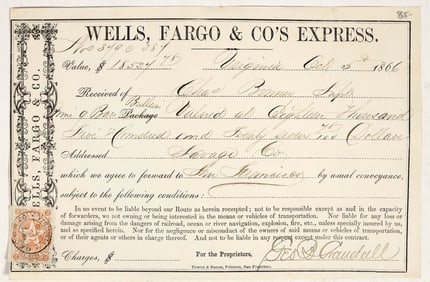 35-
WELLS, FARGO & CO'S EXPRESS.
Value, $ 18527 75 Virginia Oct 5th 1866
Received of Chas Bonner Supt
Bullion
Bar Package Valued at Eighteen Thousand
Five Hundred and Twenty Seven 75 Dollars
Addressed Savage Co
which we agree to forward to San Francisco by usual conveyance,
subject to the following conditions:
In no event to be liable beyond our Route as herein receipted; not to be responsible except as and in the capacity
of forwarders, we not owning or being interested in the means or vehicles of transportation. Nor liable for any loss or
damage arising from the dangers of railroad, ocean or river navigation, explosion, fire, etc., unless specially insured by us,
and so specified herein. Nor for the negligence or misconduct of the owners of said means or vehicles of transportation,
or of their agents or others in charge thereof. And not to be liable in any respect under this contract.
Charges, $ For the Proprietors, Geo B Crandall
Towne & Bacon, Printers, San Francisco.
WELLS, FARGO & CO.